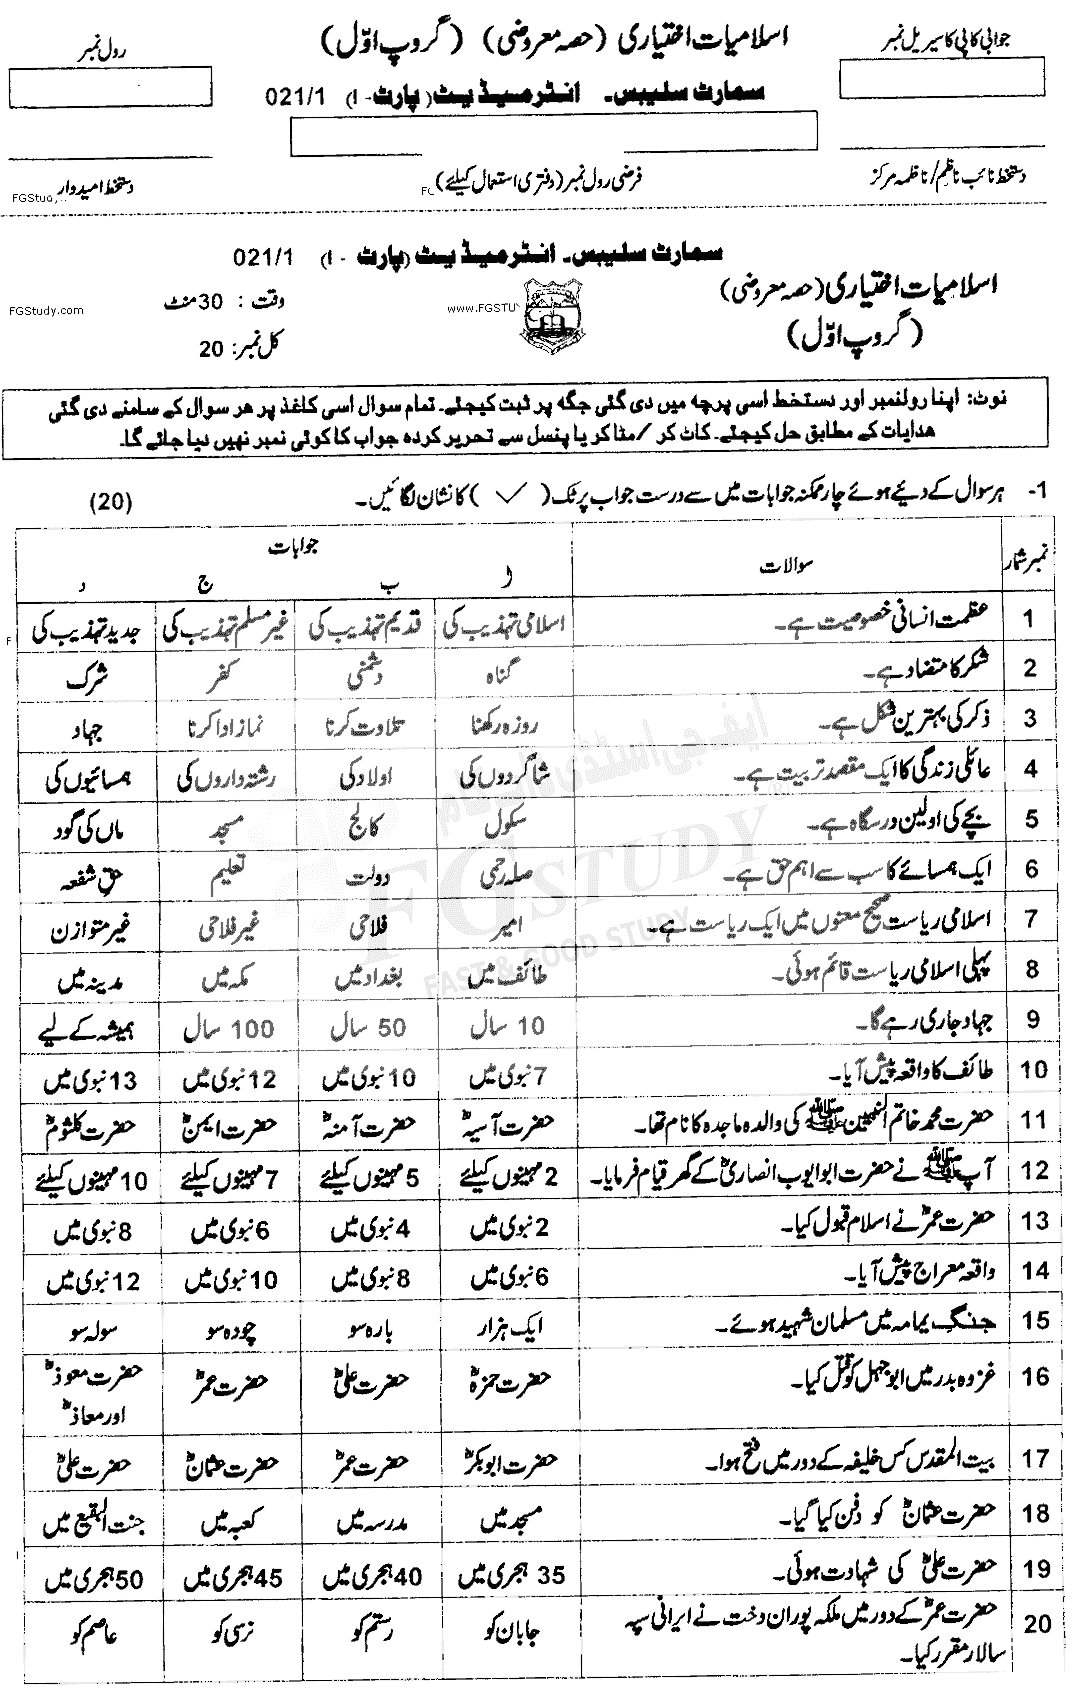 جوابی کاپی کا سیریل نمبر
اسلامیات اختیاری (حصہ معروضی) (گروپ اوّل)
رول نمبر
سمارٹ سلیبس۔ انٹرمیڈیٹ (پارٹ - I) 021/1
دستخط نائب ناظم/ناظمہ مرکز
فرضی رول نمبر (دفتری استعمال کیلئے)
دستخط امیدوار
سمارٹ سلیبس۔ انٹرمیڈیٹ (پارٹ - I) 021/1
اسلامیات اختیاری (حصہ معروضی)
وقت : 30 منٹ
FGStudy.com
(گروپ اوّل)
کل نمبر: 20
نوٹ: اپنا رولنمبر اور دستخط اسی پرچہ میں دی گئی جگہ پر ثبت کیجئے۔ تمام سوال اسی کاغذ پر ہر سوال کے سامنے دی گئی
ہدایات کے مطابق حل کیجئے۔ کاٹ کر /مٹا کر یا پنسل سے تحریر کردہ جواب کا کوئی نمبر نہیں دیا جائے گا۔
1- ہر سوال کے دئیے ہوئے چار ممکنہ جوابات میں سے درست جواب پر ٹک (✓) کا نشان لگائیں۔ (20)
نمبر شمار سوالات جوابات
ا ب ج د
1 عظمت انسانی خصوصیت ہے۔ اسلامی تہذیب کی قدیم تہذیب کی غیر مسلم تہذیب کی جدید تہذیب کی
2 شکر کا متضاد ہے۔ گناہ دشمنی کفر شرک
3 ذکر کی بہترین شکل ہے۔ روزہ رکھنا تلاوت کرنا نماز ادا کرنا جہاد
4 عائلی زندگی کا ایک مقصد تربیت ہے۔ شاگردوں کی اولاد کی رشتہ داروں کی ہمسائیوں کی
5 بچے کی اولین درسگاہ ہے۔ سکول کالج مسجد ماں کی گود
6 ایک ہمسائے کا سب سے اہم حق ہے۔ صلہ رحمی دولت تعلیم حقِ شفعہ
7 اسلامی ریاست صحیح معنوں میں ایک ریاست ہے۔ امیر فلاحی غیر فلاحی غیر متوازن
8 پہلی اسلامی ریاست قائم ہوئی۔ طائف میں بغداد میں مکہ میں مدینہ میں
9 جہاد جاری رہے گا۔ 10 سال 50 سال 100 سال ہمیشہ کے لیے
10 طائف کا واقعہ پیش آیا۔ 7 نبوی میں 10 نبوی میں 12 نبوی میں 13 نبوی میں
11 حضرت محمد خاتم النبیین ﷺ کی والدہ ماجدہ کا نام تھا۔ حضرت آسیہؓ حضرت آمنہؓ حضرت ایمنؓ حضرت کلثومؓ
12 آپ ﷺ نے حضرت ابو ایوب انصاریؓ کے گھر قیام فرمایا۔ 2 مہینوں کیلئے 5 مہینوں کیلئے 7 مہینوں کیلئے 10 مہینوں کیلئے
13 حضرت عمرؓ نے اسلام قبول کیا۔ 2 نبوی میں 4 نبوی میں 6 نبوی میں 8 نبوی میں
14 واقعہ معراج پیش آیا۔ 6 نبوی میں 8 نبوی میں 10 نبوی میں 12 نبوی میں
15 جنگ یمامہ میں مسلمان شہید ہوئے۔ ایک ہزار بارہ سو چودہ سو سولہ سو
16 غزوہ بدر میں ابو جہل کو قتل کیا۔ حضرت حمزہؓ حضرت علیؓ حضرت عمرؓ حضرت معوذؓ
اور معاذؓ
17 بیت المقدس کس خلیفہ کے دور میں فتح ہوا۔ حضرت ابوبکرؓ حضرت عمرؓ حضرت عثمانؓ حضرت علیؓ
18 حضرت عثمانؓ کو دفن کیا گیا۔ مسجد میں مدرسہ میں کعبہ میں جنت البقیع میں
19 حضرت علیؓ کی شہادت ہوئی۔ 35 ہجری میں 40 ہجری میں 45 ہجری میں 50 ہجری میں
20 حضرت عمرؓ کے دور میں ملکہ پوران دخت نے ایرانی سپہ جابان کو رستم کو نرسی کو عاصم کو
سالار مقرر کیا۔
FG STUDY
FAST & GOOD STUDY